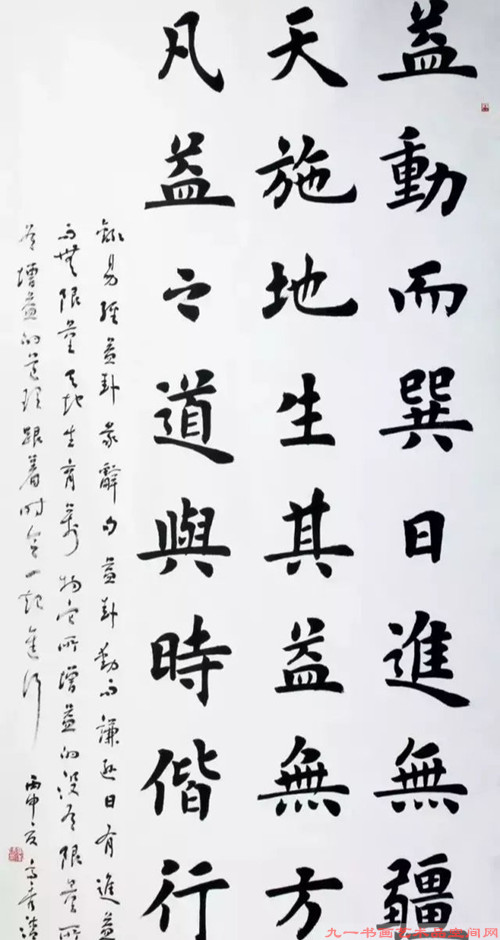 益動而巽日進無疆
天施地生其益無方
凡益之道與時偕行
錄易經益卦彖辭句益卦動而謙遜日有進益
而無限量天地生育萬物它所增益的没有限量所
有增益的道理跟着時令一起進行
丙申夏
九一书画艺术品空间网